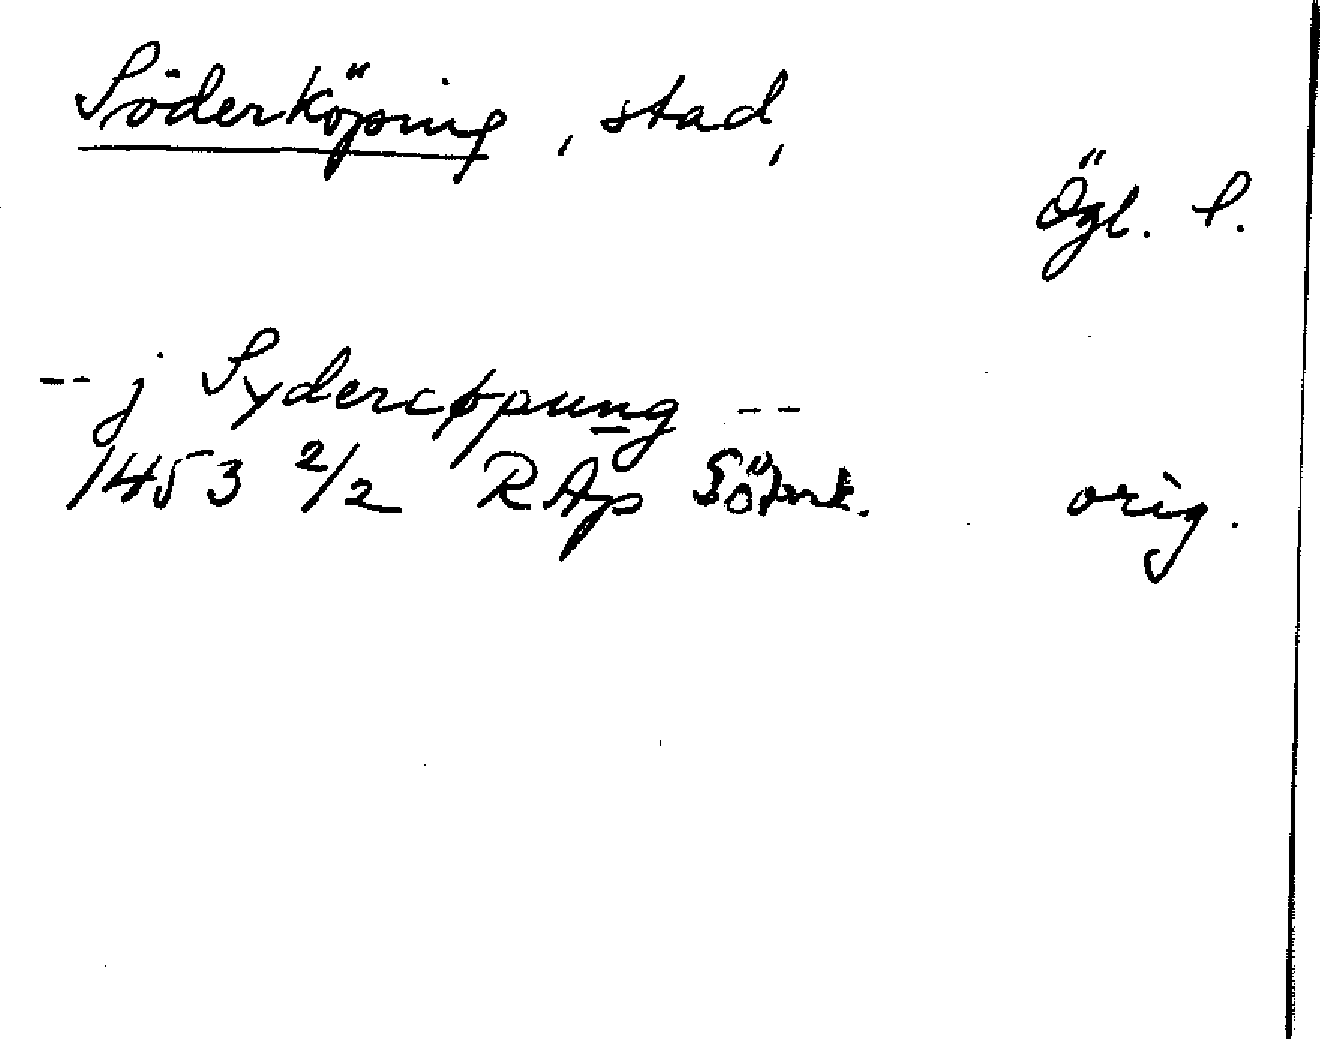 Söderköping, stad,
Ögl. S.
-- j Sydereppung --
1453 2/2 RAp Sönk. orig.